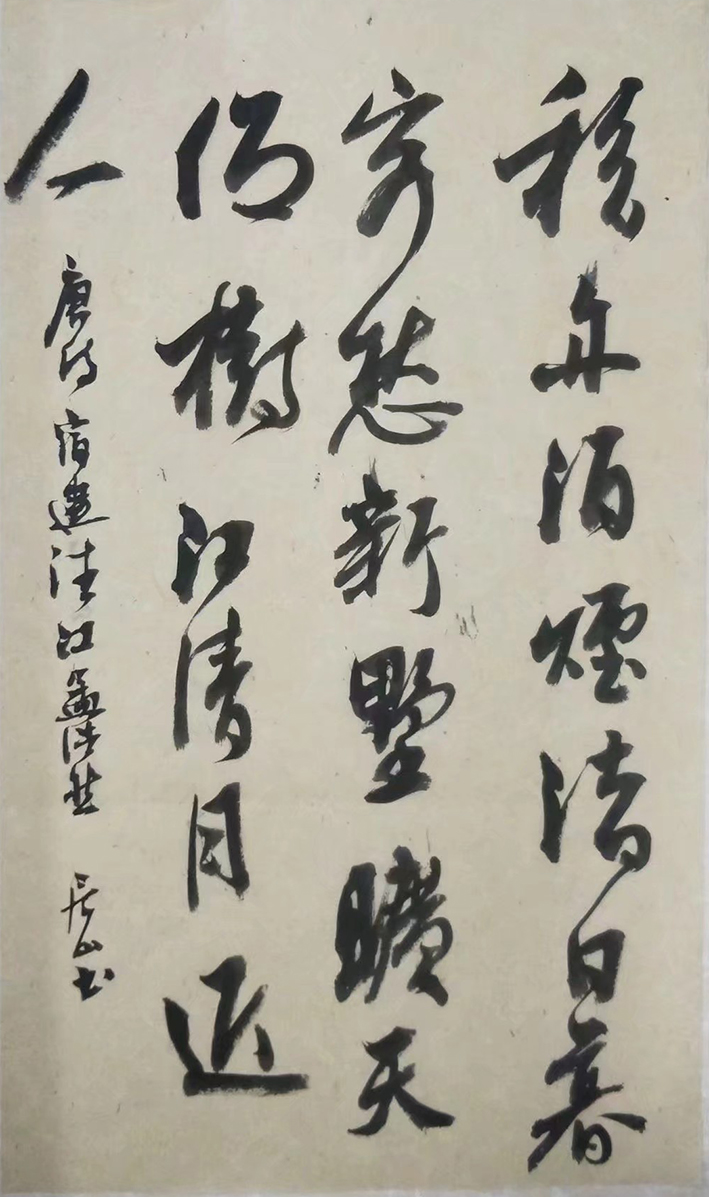 移舟泊煙渚日暮
客愁新墅曠天
低樹江清月近
人
唐诗宿建德江孟浩然 山书